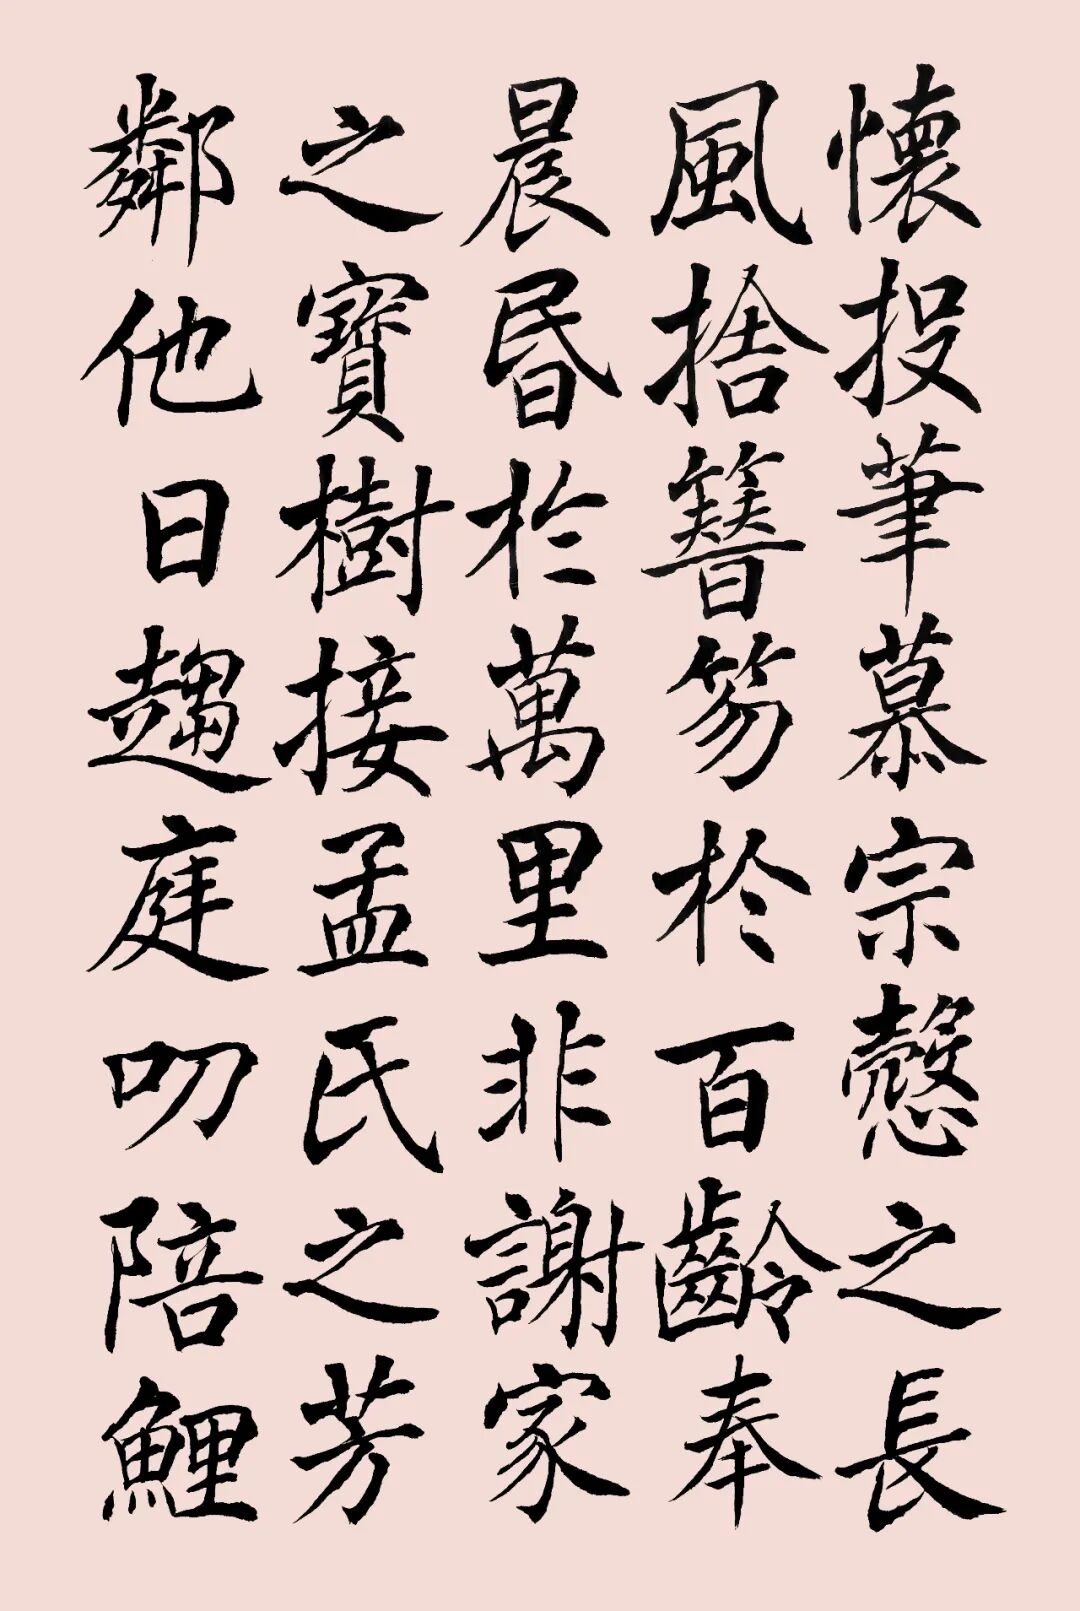 懷投筆慕宗慤之長
風捨簪笏於百齡奉
晨昏於萬里非謝家
之寶樹接孟氏之芳
鄰他日趨庭叨陪鯉